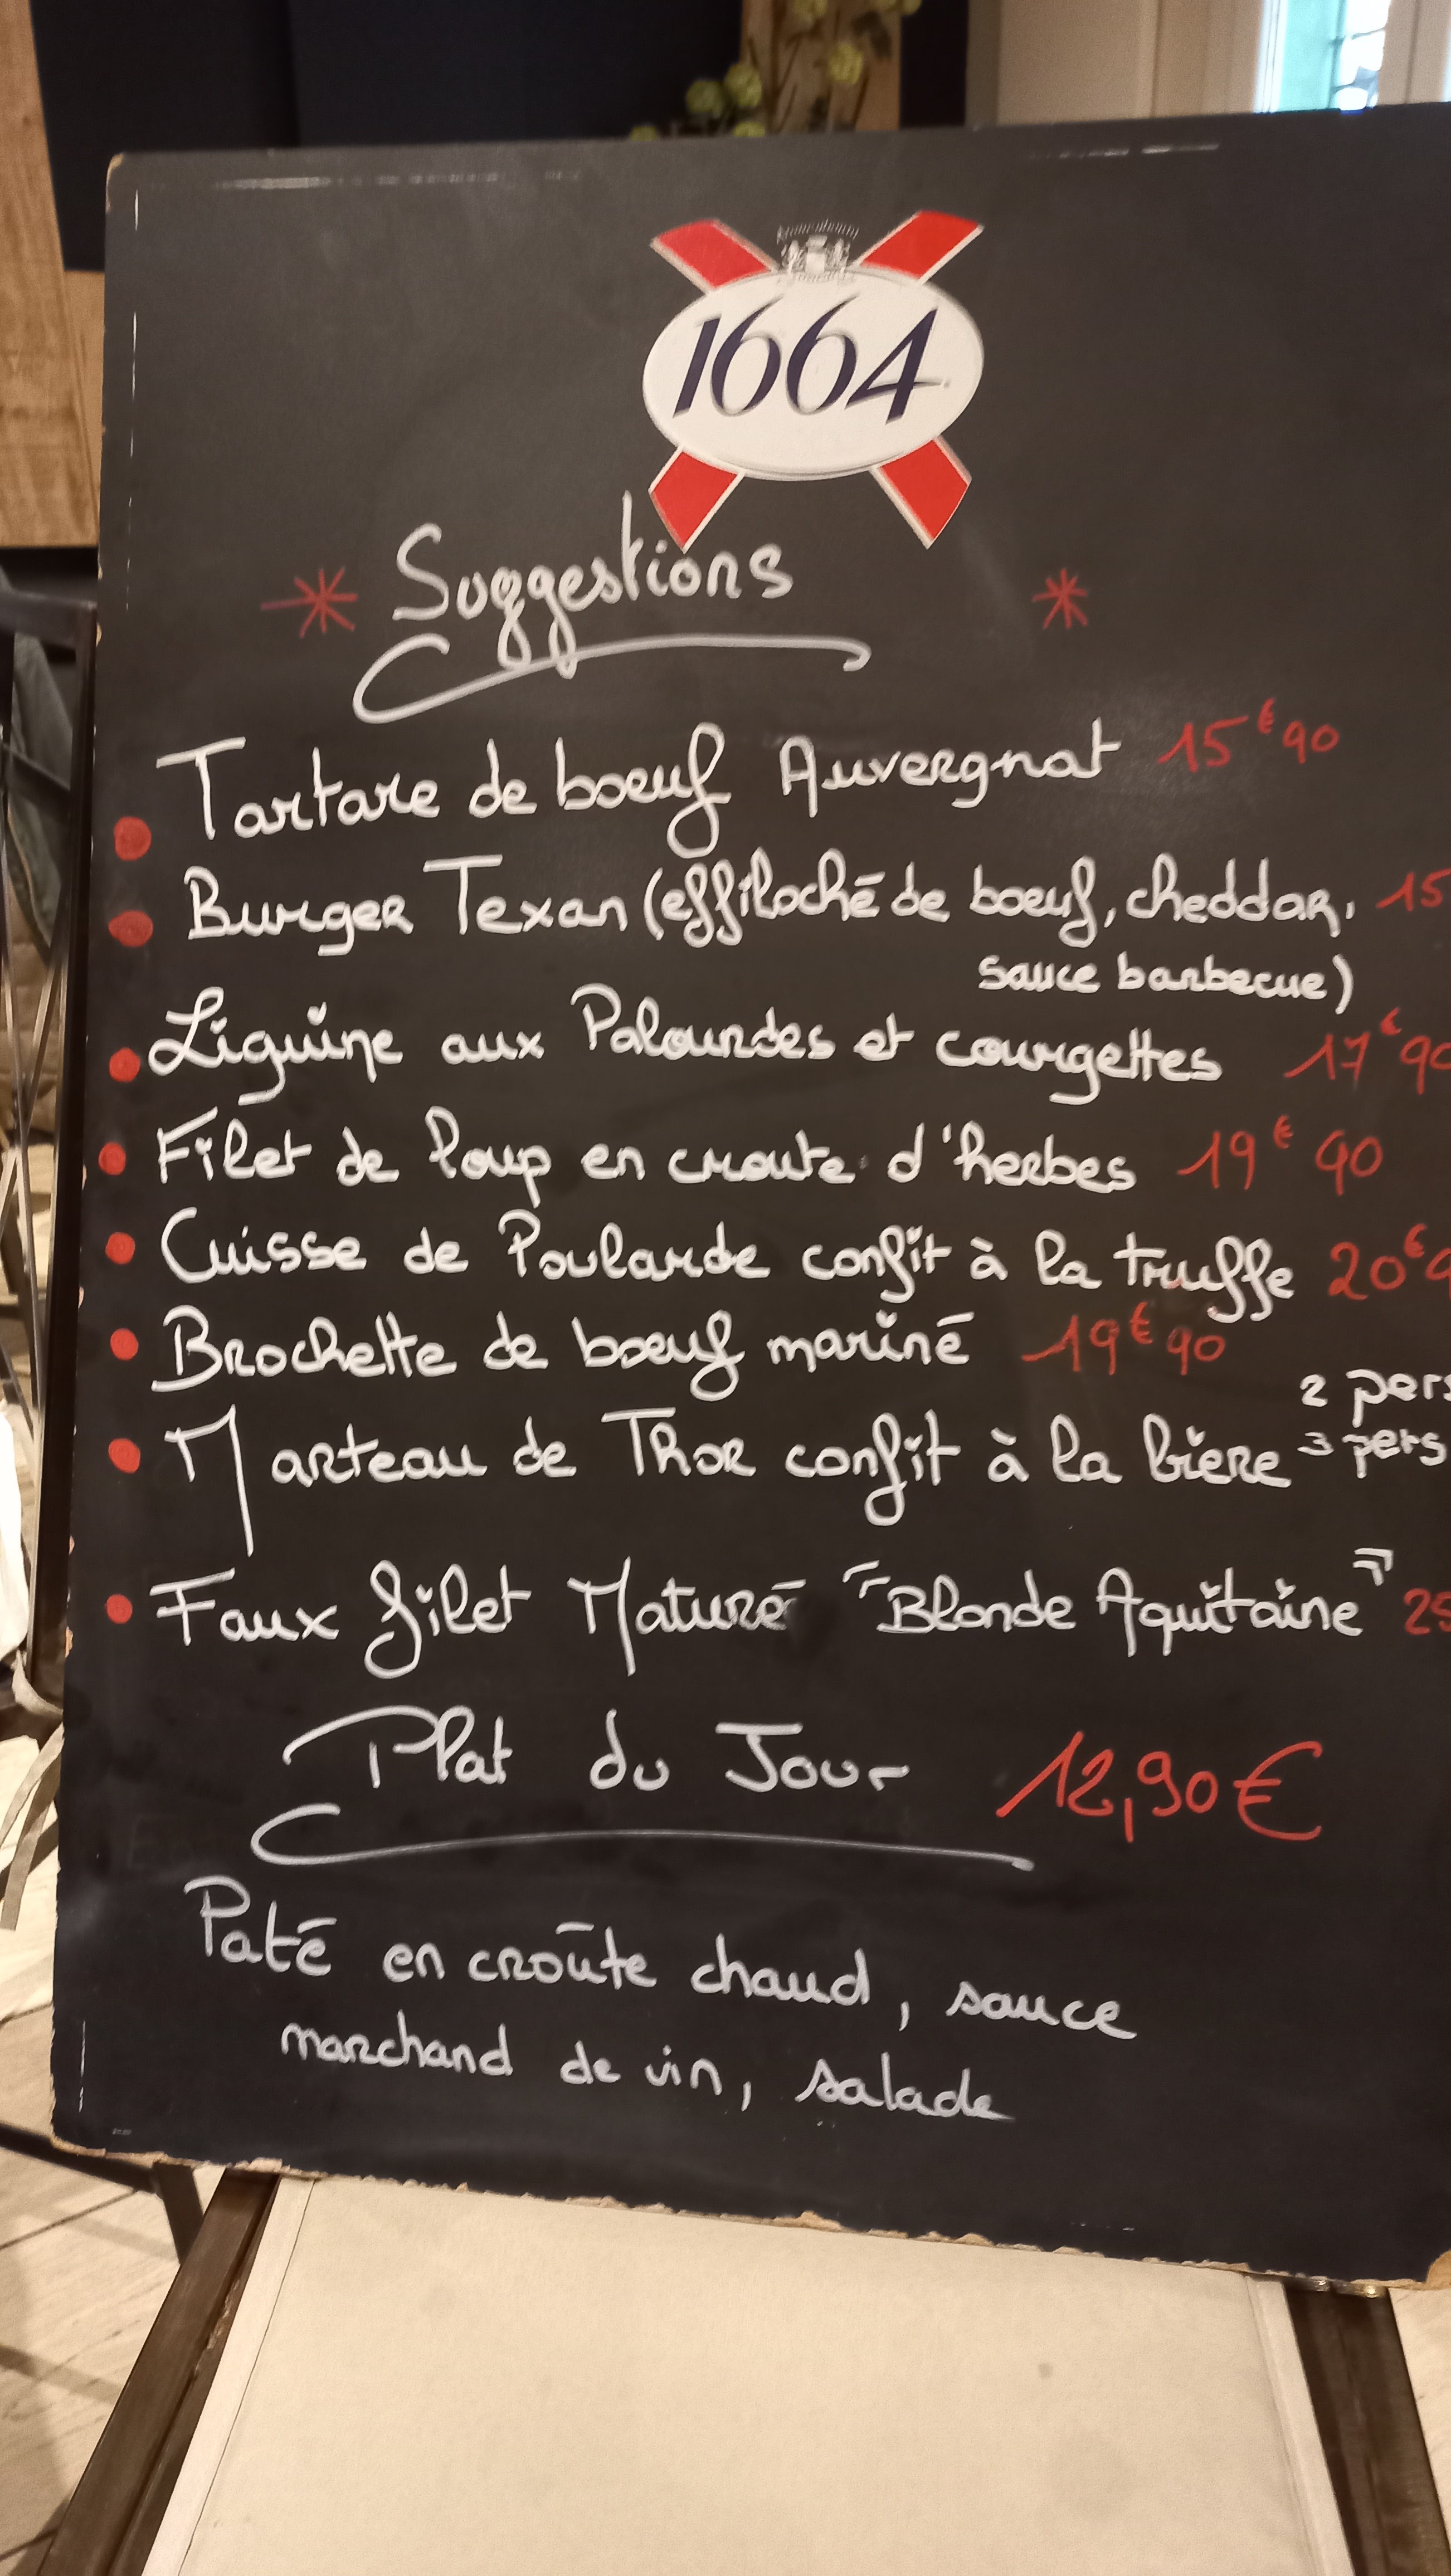 1664
Suggestions
Tartare de boeuf Auvergnat 15€90
Burger Texan (effiloché de boeuf, cheddar, 15
sauce barbecue)
Liguine aux Palourdes et courgettes 17€90
Filet de loup en croute d'herbes 19€90
Cuisse de Poularde confit à la truffe 20€
Brochette de boeuf mariné 19€90
2 pers
Marteau de Thor confit à la bière 3 pers
Faux filet Maturé "Blonde Aquitaine"
Plat du Jour 12,90€
Paté en croûte chaud, sauce
marchand de vin, salade